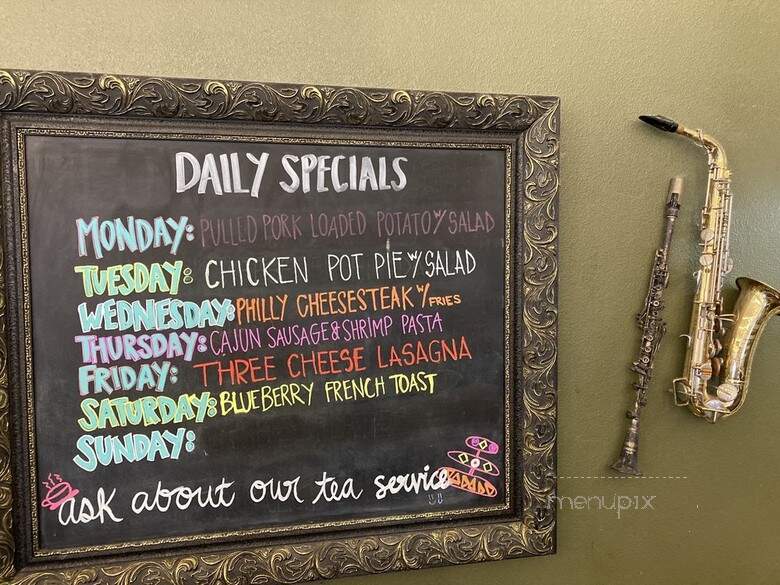 DAILY SPECIALS
MONDAY: PULLED PORK LOADED POTATO W/ SALAD
TUESDAY: CHICKEN POT PIE W/ SALAD
WEDNESDAY: PHILLY CHEESESTEAK W/ FRIES
THURSDAY: CAJUN SAUSAGE & SHRIMP PASTA
FRIDAY: THREE CHEESE LASAGNA
SATURDAY: BLUEBERRY FRENCH TOAST
SUNDAY:
ask about our tea service
menupix